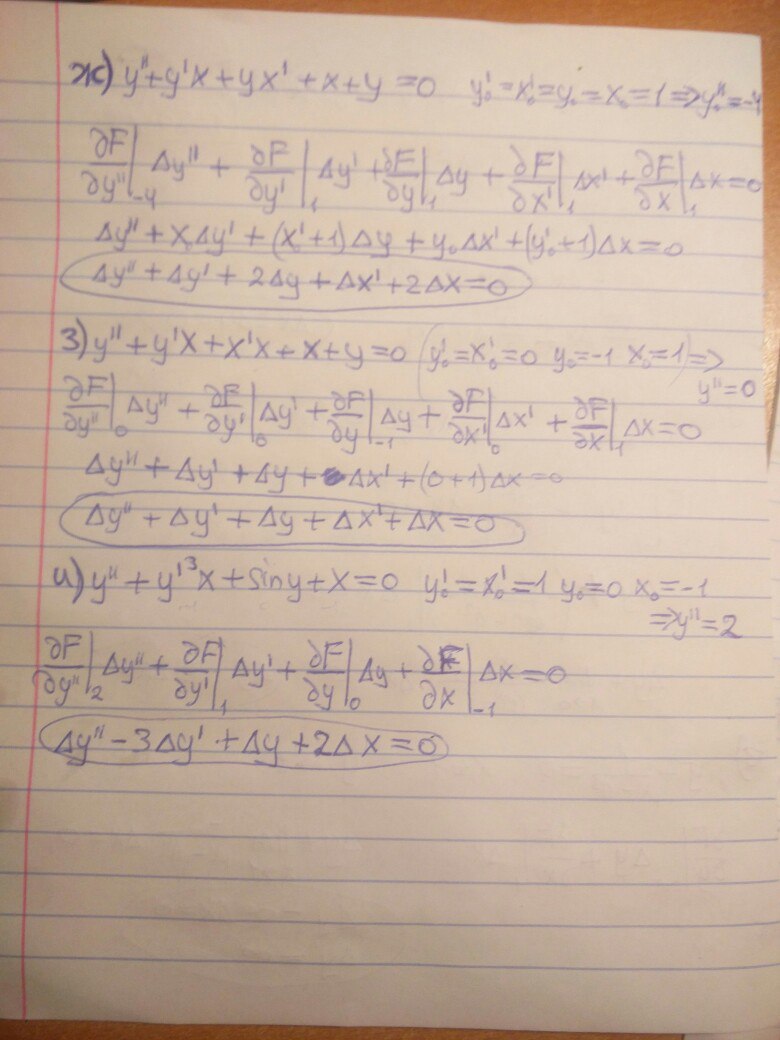 ж) y'' + y'x + yx' + x + y = 0   y₀' = x₀' = y₀ = x₀ = 1 ⇒ y₀'' = -4
∂F/∂y''|₋₄ Δy'' + ∂F/∂y'|₁ Δy' + ∂F/∂y|₁ Δy + ∂F/∂x'|₁ Δx' + ∂F/∂x|₁ Δx = 0
Δy'' + x₀Δy' + (x₀'+1)Δy + y₀Δx' + (y₀'+1)Δx = 0
Δy'' + Δy' + 2Δy + Δx' + 2Δx = 0
з) y'' + y'x + x'x + x + y = 0   (y₀' = x₀' = 0   y₀ = -1   x₀ = 1) ⇒
y'' = 0
∂F/∂y''|₀ Δy'' + ∂F/∂y'|₀ Δy' + ∂F/∂y|₋₁ Δy + ∂F/∂x'|₀ Δx' + ∂F/∂x|₁ Δx = 0
Δy'' + Δy' + Δy + Δx' + (0+1)Δx = 0
Δy'' + Δy' + Δy + Δx' + Δx = 0
и) y'' + y'³x + siny + x = 0   y₀' = x₀' = 1   y₀ = 0   x₀ = -1
⇒ y'' = 2
∂F/∂y''|₂ Δy'' + ∂F/∂y'|₁ Δy' + ∂F/∂y|₀ Δy + ∂F/∂x|₋₁ Δx = 0
Δy'' - 3Δy' + Δy + 2Δx = 0